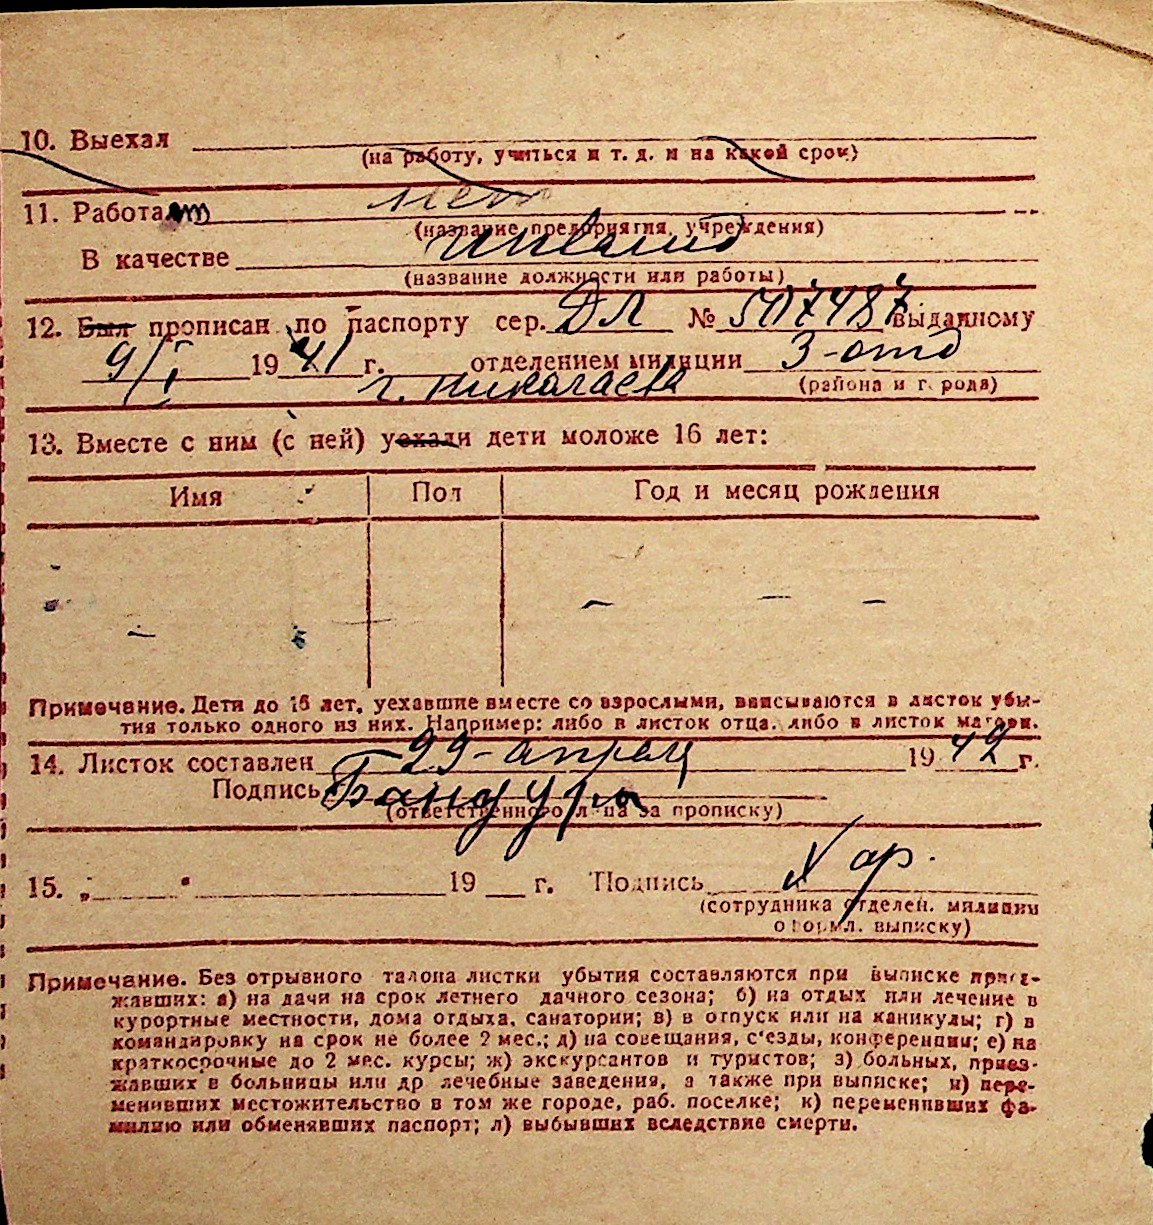 10. Выехал
(на работу, учиться и т. д. и на какой срок)
11. Работает нет
(название предприятия, учреждения)
В качестве инвалид
(название должности или работы)
12. Был прописан по паспорту сер. ДЛ № 507487 выданному
9/I 1941 г. отделением милиции 3-отд
г. Николаева (района и города)
13. Вместе с ним (с ней) уехали дети моложе 16 лет:
Имя Пол Год и месяц рождения
Примечание. Дети до 16 лет, уехавшие вместе со взрослыми, вписываются в листок убы-
тия только одного из них. Например: либо в листок отца, либо в листок матери.
14. Листок составлен 29-апреля 1942 г.
Подпись Бандура
(ответственного лица за прописку)
15. „ " 19 г. Подпись Хар.
(сотрудника отделен. милиции
оформл. выписку)
Примечание. Без отрывного талона листки убытия составляются при выписке приез-
жавших: а) на дачи на срок летнего дачного сезона; б) на отдых или лечение в
курортные местности, дома отдыха, санатории; в) в отпуск или на каникулы; г) в
командировку на срок не более 2 мес.; д) на совещания, с'езды, конференции; е) на
краткосрочные до 2 мес. курсы; ж) экскурсантов и туристов; з) больных, приез-
жавших в больницы или др лечебные заведения, а также при выписке; и) пере-
менивших местожительство в том же городе, раб. поселке; к) переменивших фа-
милию или обменявших паспорт; л) выбывших вследствие смерти.